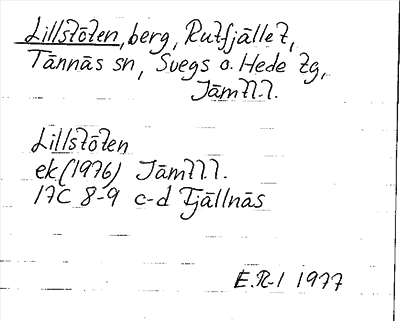 Lillstöten, berg, Rutfjället,
Tännäs sn, Svegs o. Hede tg,
Jämtl.l.
Lillstöten
ek (1976) Jämtl.l.
17C 8-9 c-d Fjällnäs
E.R-l 1977